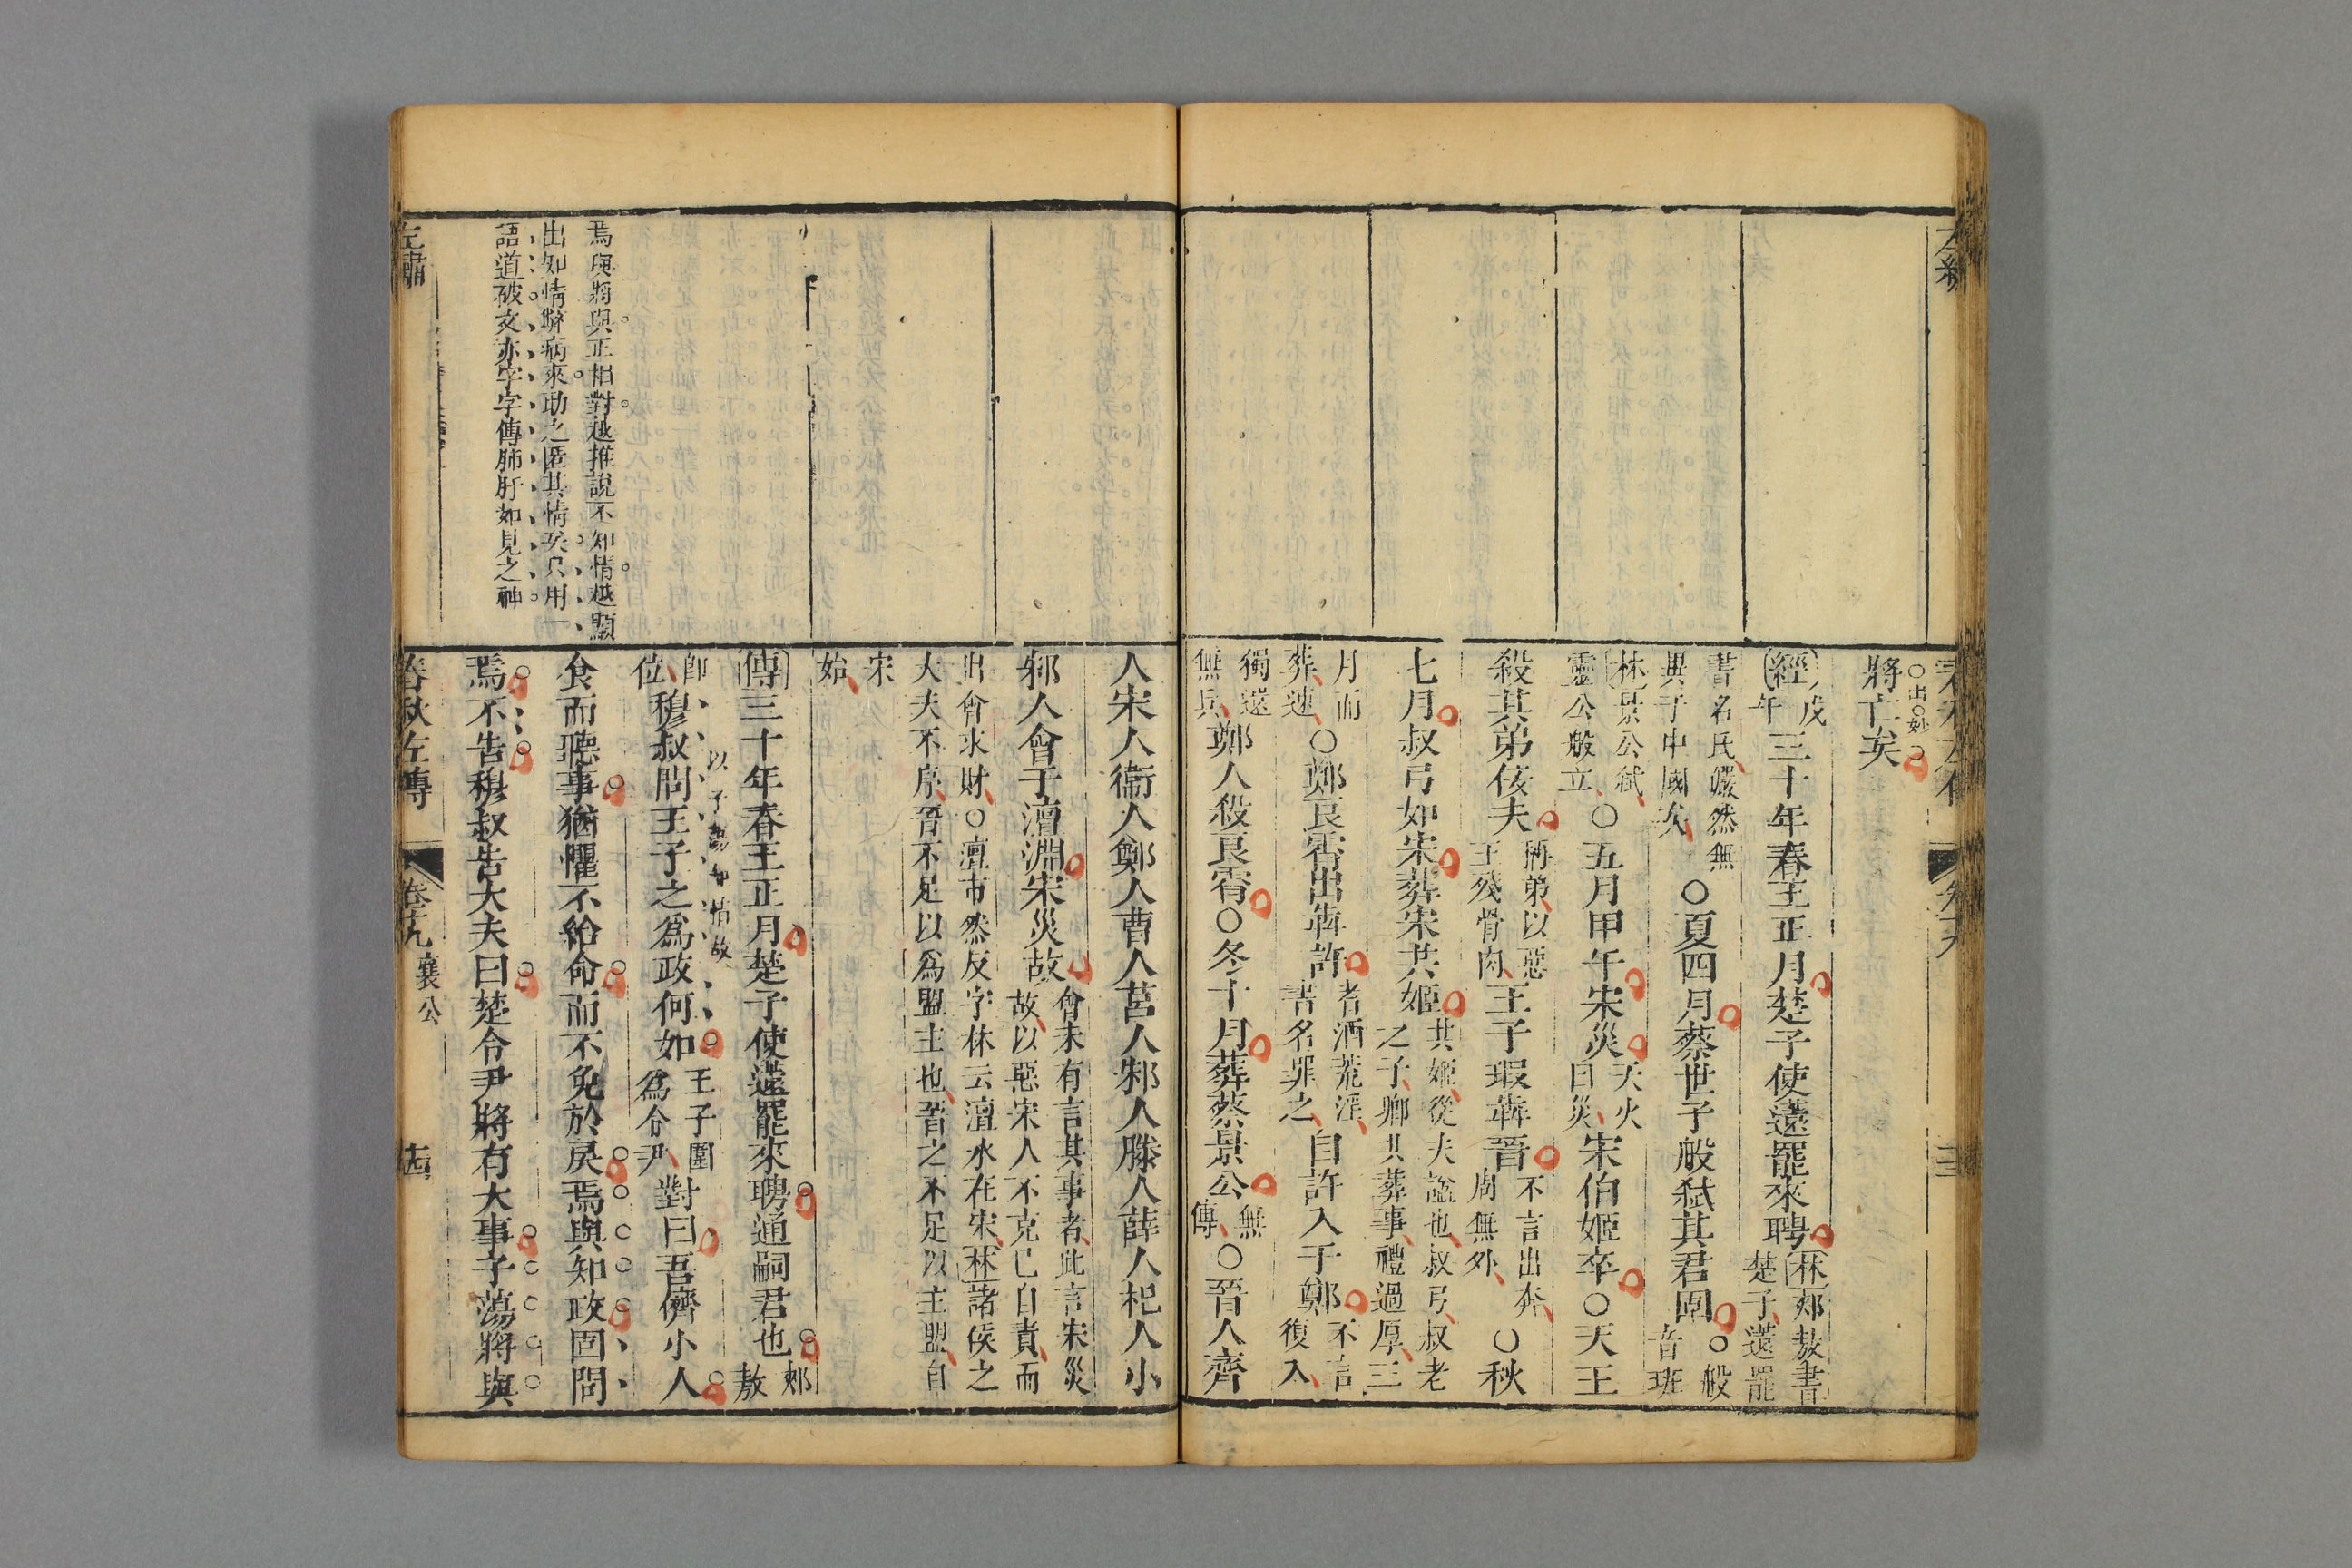 將亡矣
出妙
經戊午三十年春王正月楚子使薳罷來聘林郟敖書楚子薳罷
書名氏儼然無異于中國矣○夏四月蔡世子般弒其君固○般音班
林景公弒靈公般立○五月甲午宋災天火曰災宋伯姬卒○天王
殺其弟佞夫稱弟以惡王殘骨肉王子瑕奔晉不言出奔周無外○秋
七月叔弓如宋葬宋共姬共姬從夫謚也叔弓叔老之子卿共葬事禮過厚三
月而葬速○鄭良霄出奔許耆酒荒淫書名罪之自許入于鄭不言復入
獨還無兵鄭人殺良霄○冬十月葬蔡景公無傳○晉人齊
人宋人衞人鄭人曹人莒人邾人滕人薛人杞人小
邾人會于澶淵宋災故會未有言其事者此言宋災故以惡宋人不克己自責而
出會求財○澶市然反字林云澶水在宋林諸侯之
大夫不序晉不足以爲盟主也晉之不足以主盟自
宋始
傳三十年春王正月楚子使薳罷來聘通嗣君也郟敖
卽位穆叔問王子之爲政何如王子圍爲令尹對曰吾儕小人
以子蕩知情故
食而聽事猶懼不給命而不免於戾焉與知政固問
焉不告穆叔告大夫曰楚令尹將有大事子蕩將與
焉與將與正相對越推說不知情越顯
出知情騐病來助之匿其情矣只用一
語道破文亦字字傳肺肝如見之神
左繡
春秋左傳
卷十九
襄公